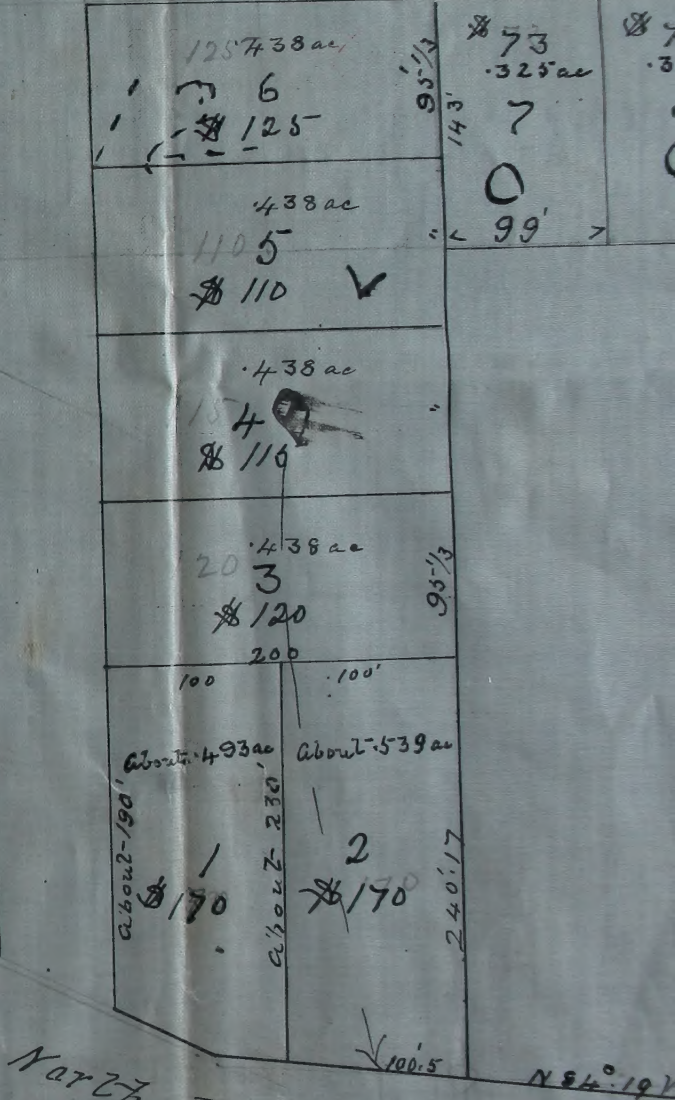 125 .438 ac
6
$ 125
95 1/3
$ 73
.325 ac
143'
7
0
< 99' >
$
.3
.438 ac
110 5
$ 110
"
.438 ac
15 4
$ 110
"
.438 ac
20 3
$ 120
95 1/3
200
100
100'
about .493 ac
about 190'
1
$ 170
about 230'
about .539 ac
2
$ 170
240'.17
100'.5
N 84°.19'